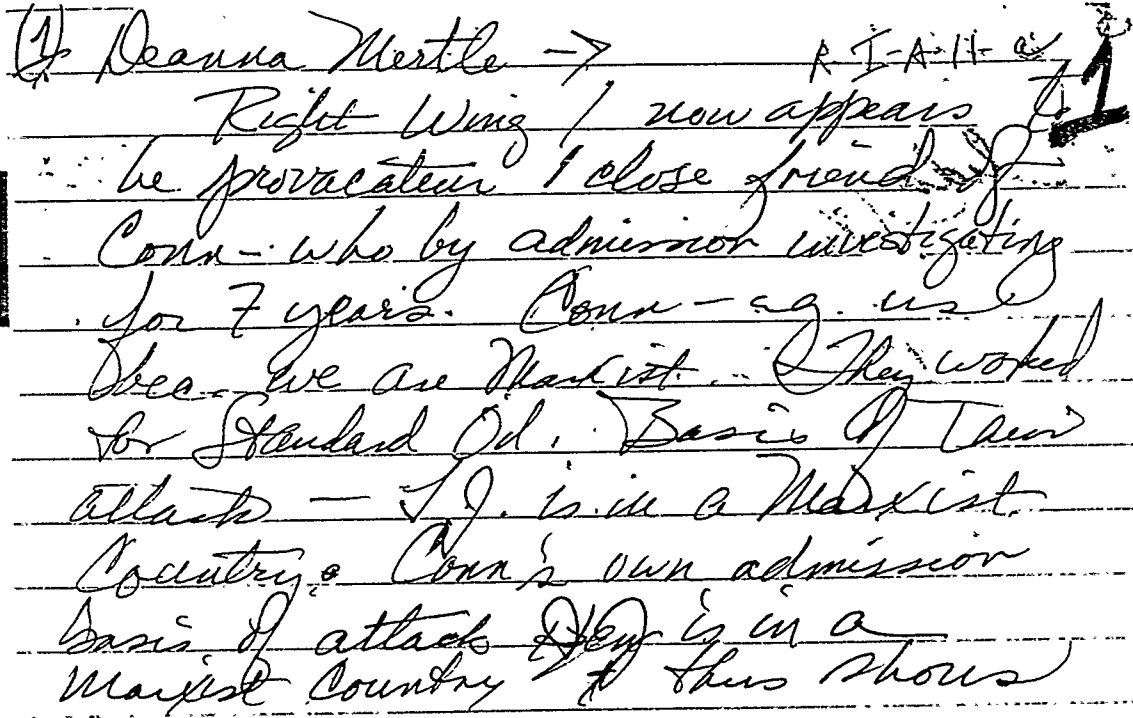 (1) Deanna Mertle → R-I-A-H-a 1
Right Wing / now appears to
be provacateur / close friend of
Conn - who by admission investigating
for 7 years. Conn - ag. us
bec. we are Marxist. They worked
for Standard Oil. Basis of
attack - J.J. is in a Marxist
Country. Conn's own admission
basis of attack is in a
Marxist Country & thus shows